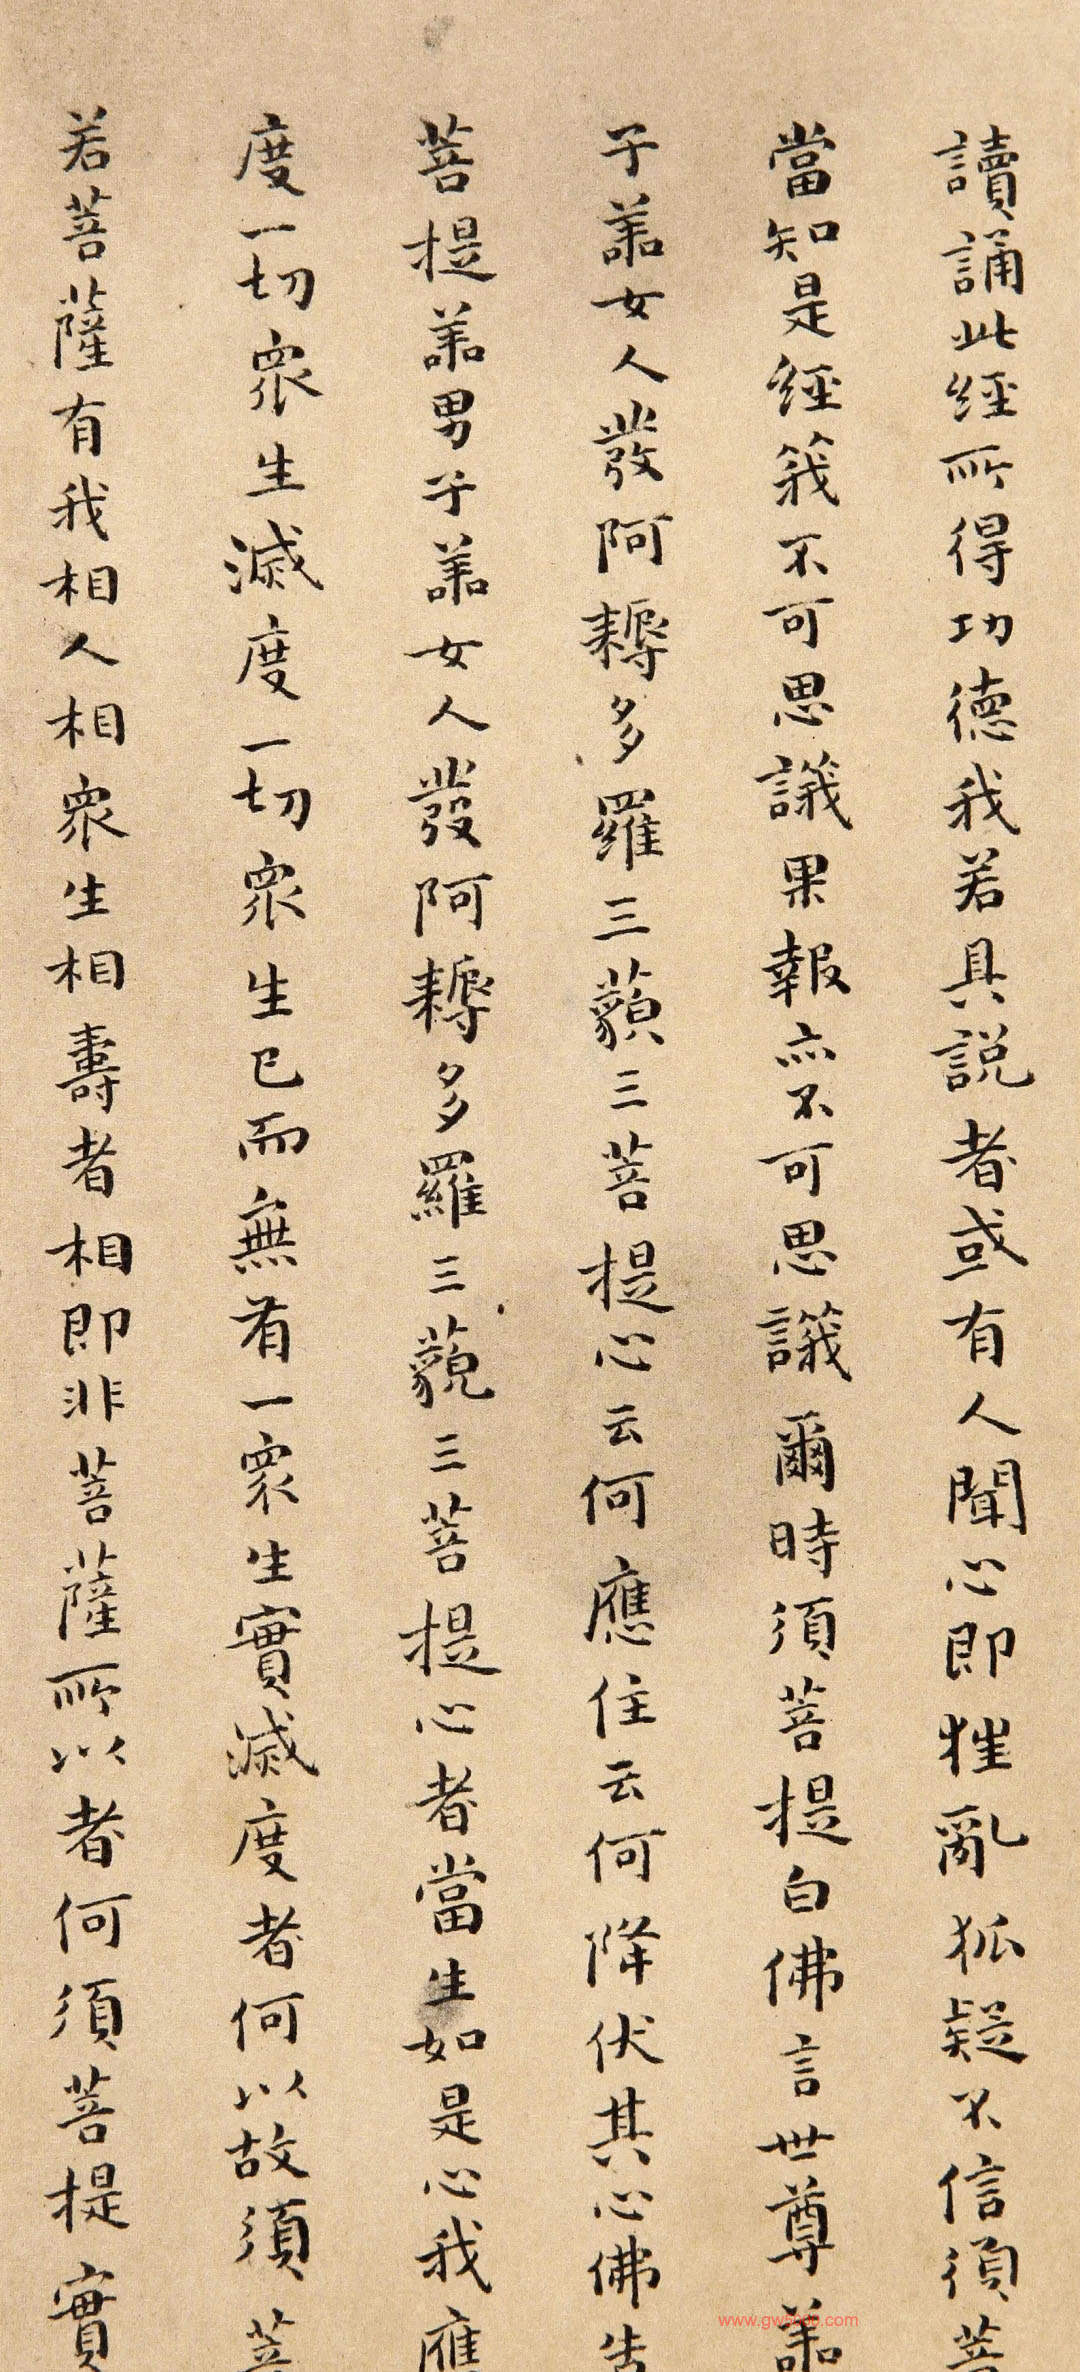 讀誦此經所得功德我若具說者或有人聞心即狂亂狐疑不信須菩
當知是經義不可思議果報亦不可思議爾時須菩提白佛言世尊善
子善女人發阿耨多羅三藐三菩提心云何應住云何降伏其心佛告
菩提善男子善女人發阿耨多羅三藐三菩提心者當生如是心我應
度一切眾生滅度一切眾生已而無有一眾生實滅度者何以故須菩
若菩薩有我相人相眾生相壽者相即非菩薩所以者何須菩提實